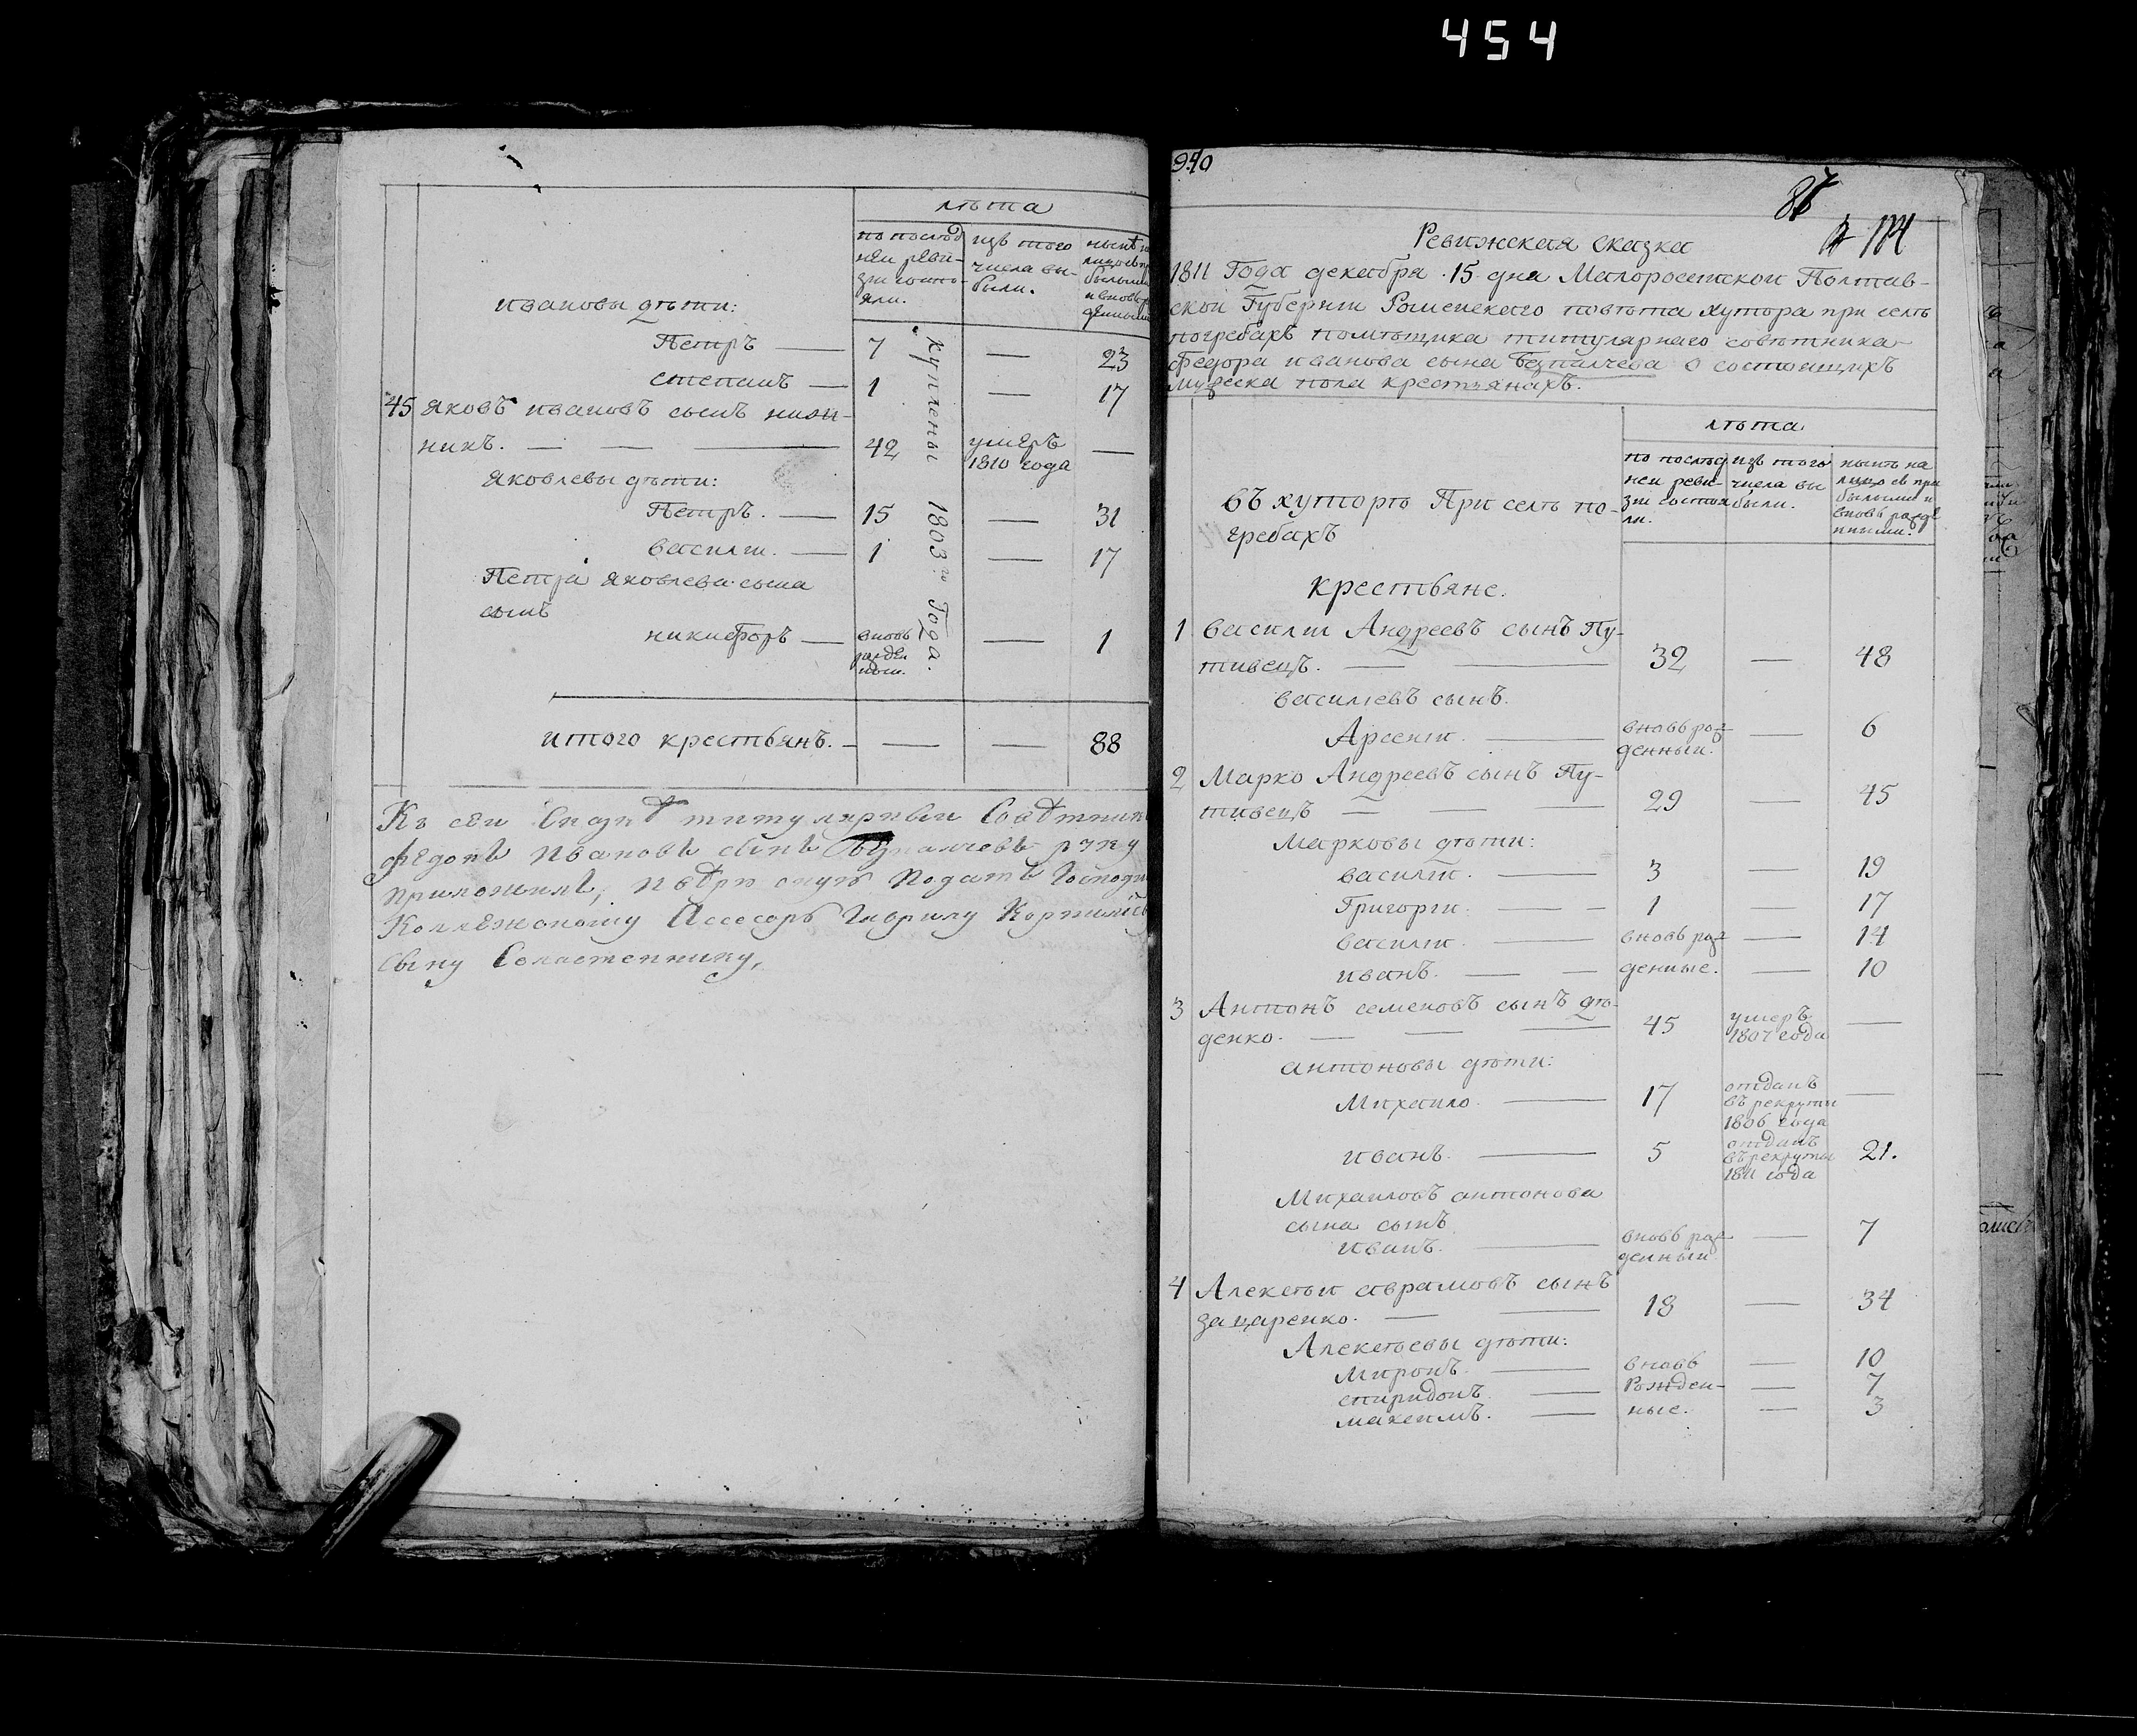 454
лѣта
по послѣд
ней реви-
зіи состо-
яли.
изъ того
числа вы-
были.
ивановы дѣти:
Петръ — 7 — 23
степанъ — 1 — 17
45 яковъ ивановъ сынъ
никъ. — — — 42 умеръ 1810 года —
яковлевы дѣти:
Петръ. — 15 — 31
василій. — 1 — 17
Петра яковлева сына
сынъ
никифоръ — вновь рожден ный. — 1
куплены 1803го Года.
итого крестьянъ. — — — 88
Къ сей Сказкѣ титулярный Совѣтник
федоръ Ивановъ сынъ Безпалчевъ руку
приложилъ, подать
Колежскому Асесору Гаврилу
сыну
940
87
114
Ревижская сказка
1811 Года декабря 15 дня Малоросейской Полтав-
ской Губерніи Роменскаго повѣта хутора при селѣ
погребахъ помѣщика титулярнаго совѣтника
Федора иванова сына Безпалчева о состоящихъ
мужеска пола крестьянахъ.
лѣта
по послѣд
ней реви-
зіи состоя
ли.
изъ того
числа вы
были.
нынѣ на
лицо съ при
былыми и
вновь рожде
нными.
въ хуторѣ При селѣ по-
гребахъ
крестьяне.
1 василій Андреевъ сынъ Пу-
тивецъ. — — 32 — 48
василіевъ сынъ.
Арсеній. — вновь рож денный. — 6
2 Марко Андреевъ сынъ Пу-
тивецъ — — — 29 — 45
Марковы дѣти:
василій. — 3 — 19
Григорій. — — 1 — 17
василій. — вновь рож — 14
иванъ. — — денные. — 10
3 Антонъ семеновъ сынъ дѣ-
денко. — — — 45 умеръ 1807 года —
антоновы дѣти:
Михаило. — 17 отданъ въ рекруты 1806 года —
иванъ. — 5 отданъ въ рекруты 1811 года 21.
Михаиловъ антонова
сына сынъ
иванъ. — вновь рож денный — 7
4 Алексѣй аврамовъ сынъ
зацаренко. — — 18 — 34
Алексѣевы дѣти:
Миронъ. — вновь — 10
спиридонъ. — Рожден- — 7
максимъ. — ные. — 3